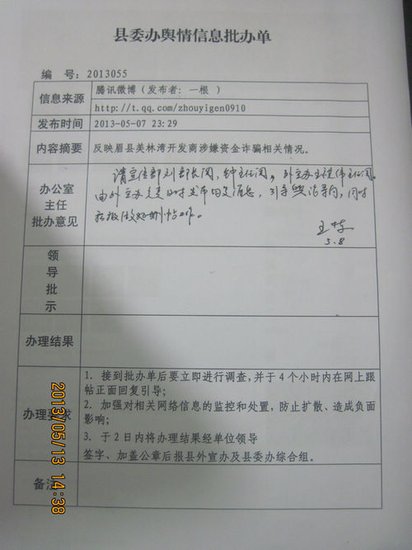 县委办舆情信息批办单
编 号：2013055
信息来源
腾讯微博（发布者：一根 ）
http://t.qq.com/zhouyigen0910
发布时间
2013-05-07 23:29
内容摘要
反映眉县美林湾开发商涉嫌资金诈骗相关情况。
办公室
主任
批办意见
请宣传部刘部长阅，钟主任阅，外宣办主任伟主任阅
由外宣办负责及时发布回复信息，引导舆论导向，同时
积极做好删帖工作。
5.8
领
导
批
示
办理结果
办理
1．接到批办单后要立即进行调查，并于 4 个小时内在网上跟
帖正面回复引导；
2．加强对相关网络信息的监控和处置，防止扩散、造成负面
影响；
3．于 2 日内将办理结果经单位领导
签字、加盖公章后报县外宣办及县委办综合组。
备注
2013/05/13 14:38